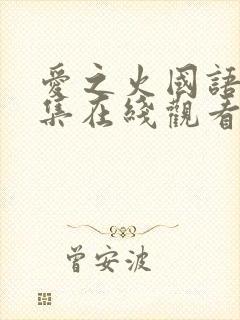 愛之火國語
集在綫觀看
曾安波